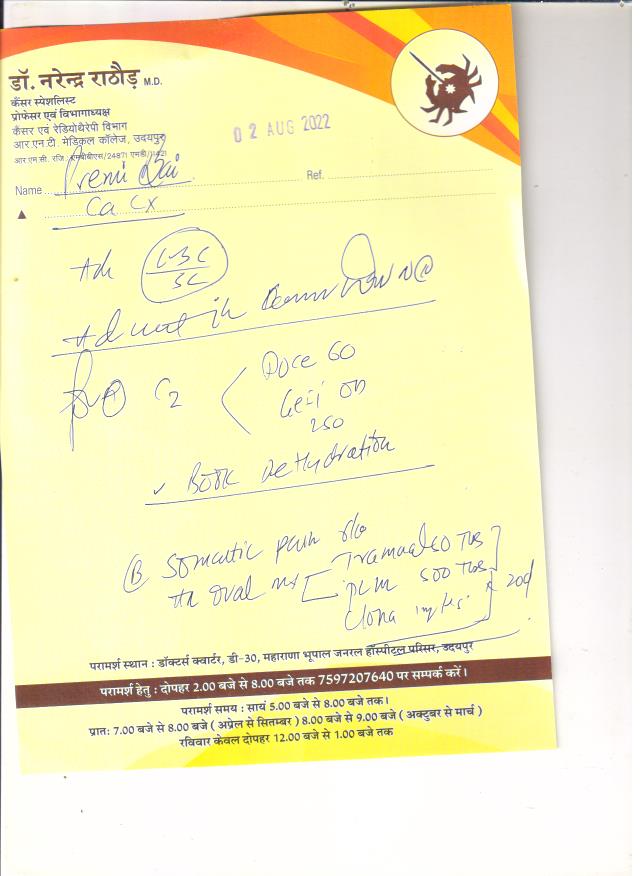 डॉ. नरेन्द्र राठौड़ M.D.
कैंसर स्पेशलिस्ट
प्रोफेसर एवं विभागाध्यक्ष
कैंसर एवं रेडियोथैरेपी विभाग
आर.एन.टी. मेडिकल कॉलेज, उदयपुर
आर.एम.सी. रजि.: एमबीबीएस/24871 एमडी/11421
02 AUG 2022
Name Premi Bai Ref.
Ca Cx
Adv CBC
SC
C2
Doce 60
250
Dehydration
Somatic pain
oral
Tramadol 50 Tab
PCM 500 Tab
Clona 1mg
x 20d
परामर्श स्थान : डॉक्टर्स क्वार्टर, डी-30, महाराणा भूपाल जनरल हॉस्पीटल परिसर, उदयपुर
परामर्श हेतु : दोपहर 2.00 बजे से 8.00 बजे तक 7597207640 पर सम्पर्क करें।
परामर्श समय : सायं 5.00 बजे से 8.00 बजे तक।
प्रात: 7.00 बजे से 8.00 बजे ( अप्रेल से सितम्बर ) 8.00 बजे से 9.00 बजे ( अक्टुबर से मार्च )
रविवार केवल दोपहर 12.00 बजे से 1.00 बजे तक